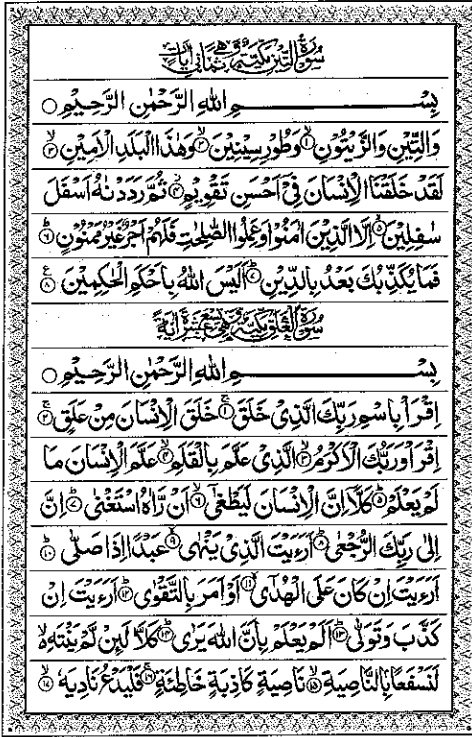 سُوْرَةُ التِّيْنِ مَكِّيَّةٌ وَّهِيَ ثَمَانِيْ اٰيَاتٍ
بِسْــــــــــمِ اللهِ الرَّحْمٰنِ الرَّحِيْمِ ○
وَالتِّيْنِ وَالزَّيْتُوْنِ ۙ﴿۱﴾ وَطُوْرِ سِيْنِيْنَ ۙ﴿۲﴾ وَهٰذَا الْبَلَدِ الْاَمِيْنِ ۙ﴿۳﴾
لَقَدْ خَلَقْنَا الْاِنْسَانَ فِيْٓ اَحْسَنِ تَقْوِيْمٍ ۙ﴿۴﴾ ثُمَّ رَدَدْنٰهُ اَسْفَلَ
سٰفِلِيْنَ ۙ﴿۵﴾ اِلَّا الَّذِيْنَ اٰمَنُوْا وَعَمِلُوا الصّٰلِحٰتِ فَلَهُمْ اَجْرٌ غَيْرُ مَمْنُوْنٍ ؕ﴿۶﴾
فَمَا يُكَذِّبُكَ بَعْدُ بِالدِّيْنِ ؕ﴿۷﴾ اَلَيْسَ اللهُ بِاَحْكَمِ الْحٰكِمِيْنَ ﴿۸﴾ ع
سُوْرَةُ الْعَلَقِ مَكِّيَّةٌ وَّهِيَ تِسْعَ عَشْرَةَ اٰيَةً
بِسْــــــــــمِ اللهِ الرَّحْمٰنِ الرَّحِيْمِ ○
اِقْرَاْ بِاسْمِ رَبِّكَ الَّذِيْ خَلَقَ ۚ﴿۱﴾ خَلَقَ الْاِنْسَانَ مِنْ عَلَقٍ ۚ﴿۲﴾
اِقْرَاْ وَرَبُّكَ الْاَكْرَمُ ۙ﴿۳﴾ الَّذِيْ عَلَّمَ بِالْقَلَمِ ۙ﴿۴﴾ عَلَّمَ الْاِنْسَانَ مَا
لَمْ يَعْلَمْ ؕ﴿۵﴾ كَلَّآ اِنَّ الْاِنْسَانَ لَيَطْغٰٓى ۙ﴿۶﴾ اَنْ رَّاٰهُ اسْتَغْنٰى ؕ﴿۷﴾ اِنَّ
اِلٰى رَبِّكَ الرُّجْعٰى ؕ﴿۸﴾ اَرَءَيْتَ الَّذِيْ يَنْهٰى ۙ﴿۹﴾ عَبْدًا اِذَا صَلّٰى ؕ﴿۱۰﴾
اَرَءَيْتَ اِنْ كَانَ عَلَى الْهُدٰٓى ۙ﴿۱۱﴾ اَوْ اَمَرَ بِالتَّقْوٰى ؕ﴿۱۲﴾ اَرَءَيْتَ اِنْ
كَذَّبَ وَتَوَلّٰى ؕ﴿۱۳﴾ اَلَمْ يَعْلَمْ بِاَنَّ اللهَ يَرٰى ؕ﴿۱۴﴾ كَلَّا لَئِنْ لَّمْ يَنْتَهِ ۙ
لَنَسْفَعًۢا بِالنَّاصِيَةِ ۙ﴿۱۵﴾ نَاصِيَةٍ كَاذِبَةٍ خَاطِئَةٍ ۚ﴿۱۶﴾ فَلْيَدْعُ نَادِيَهٗ ۙ﴿۱۷﴾